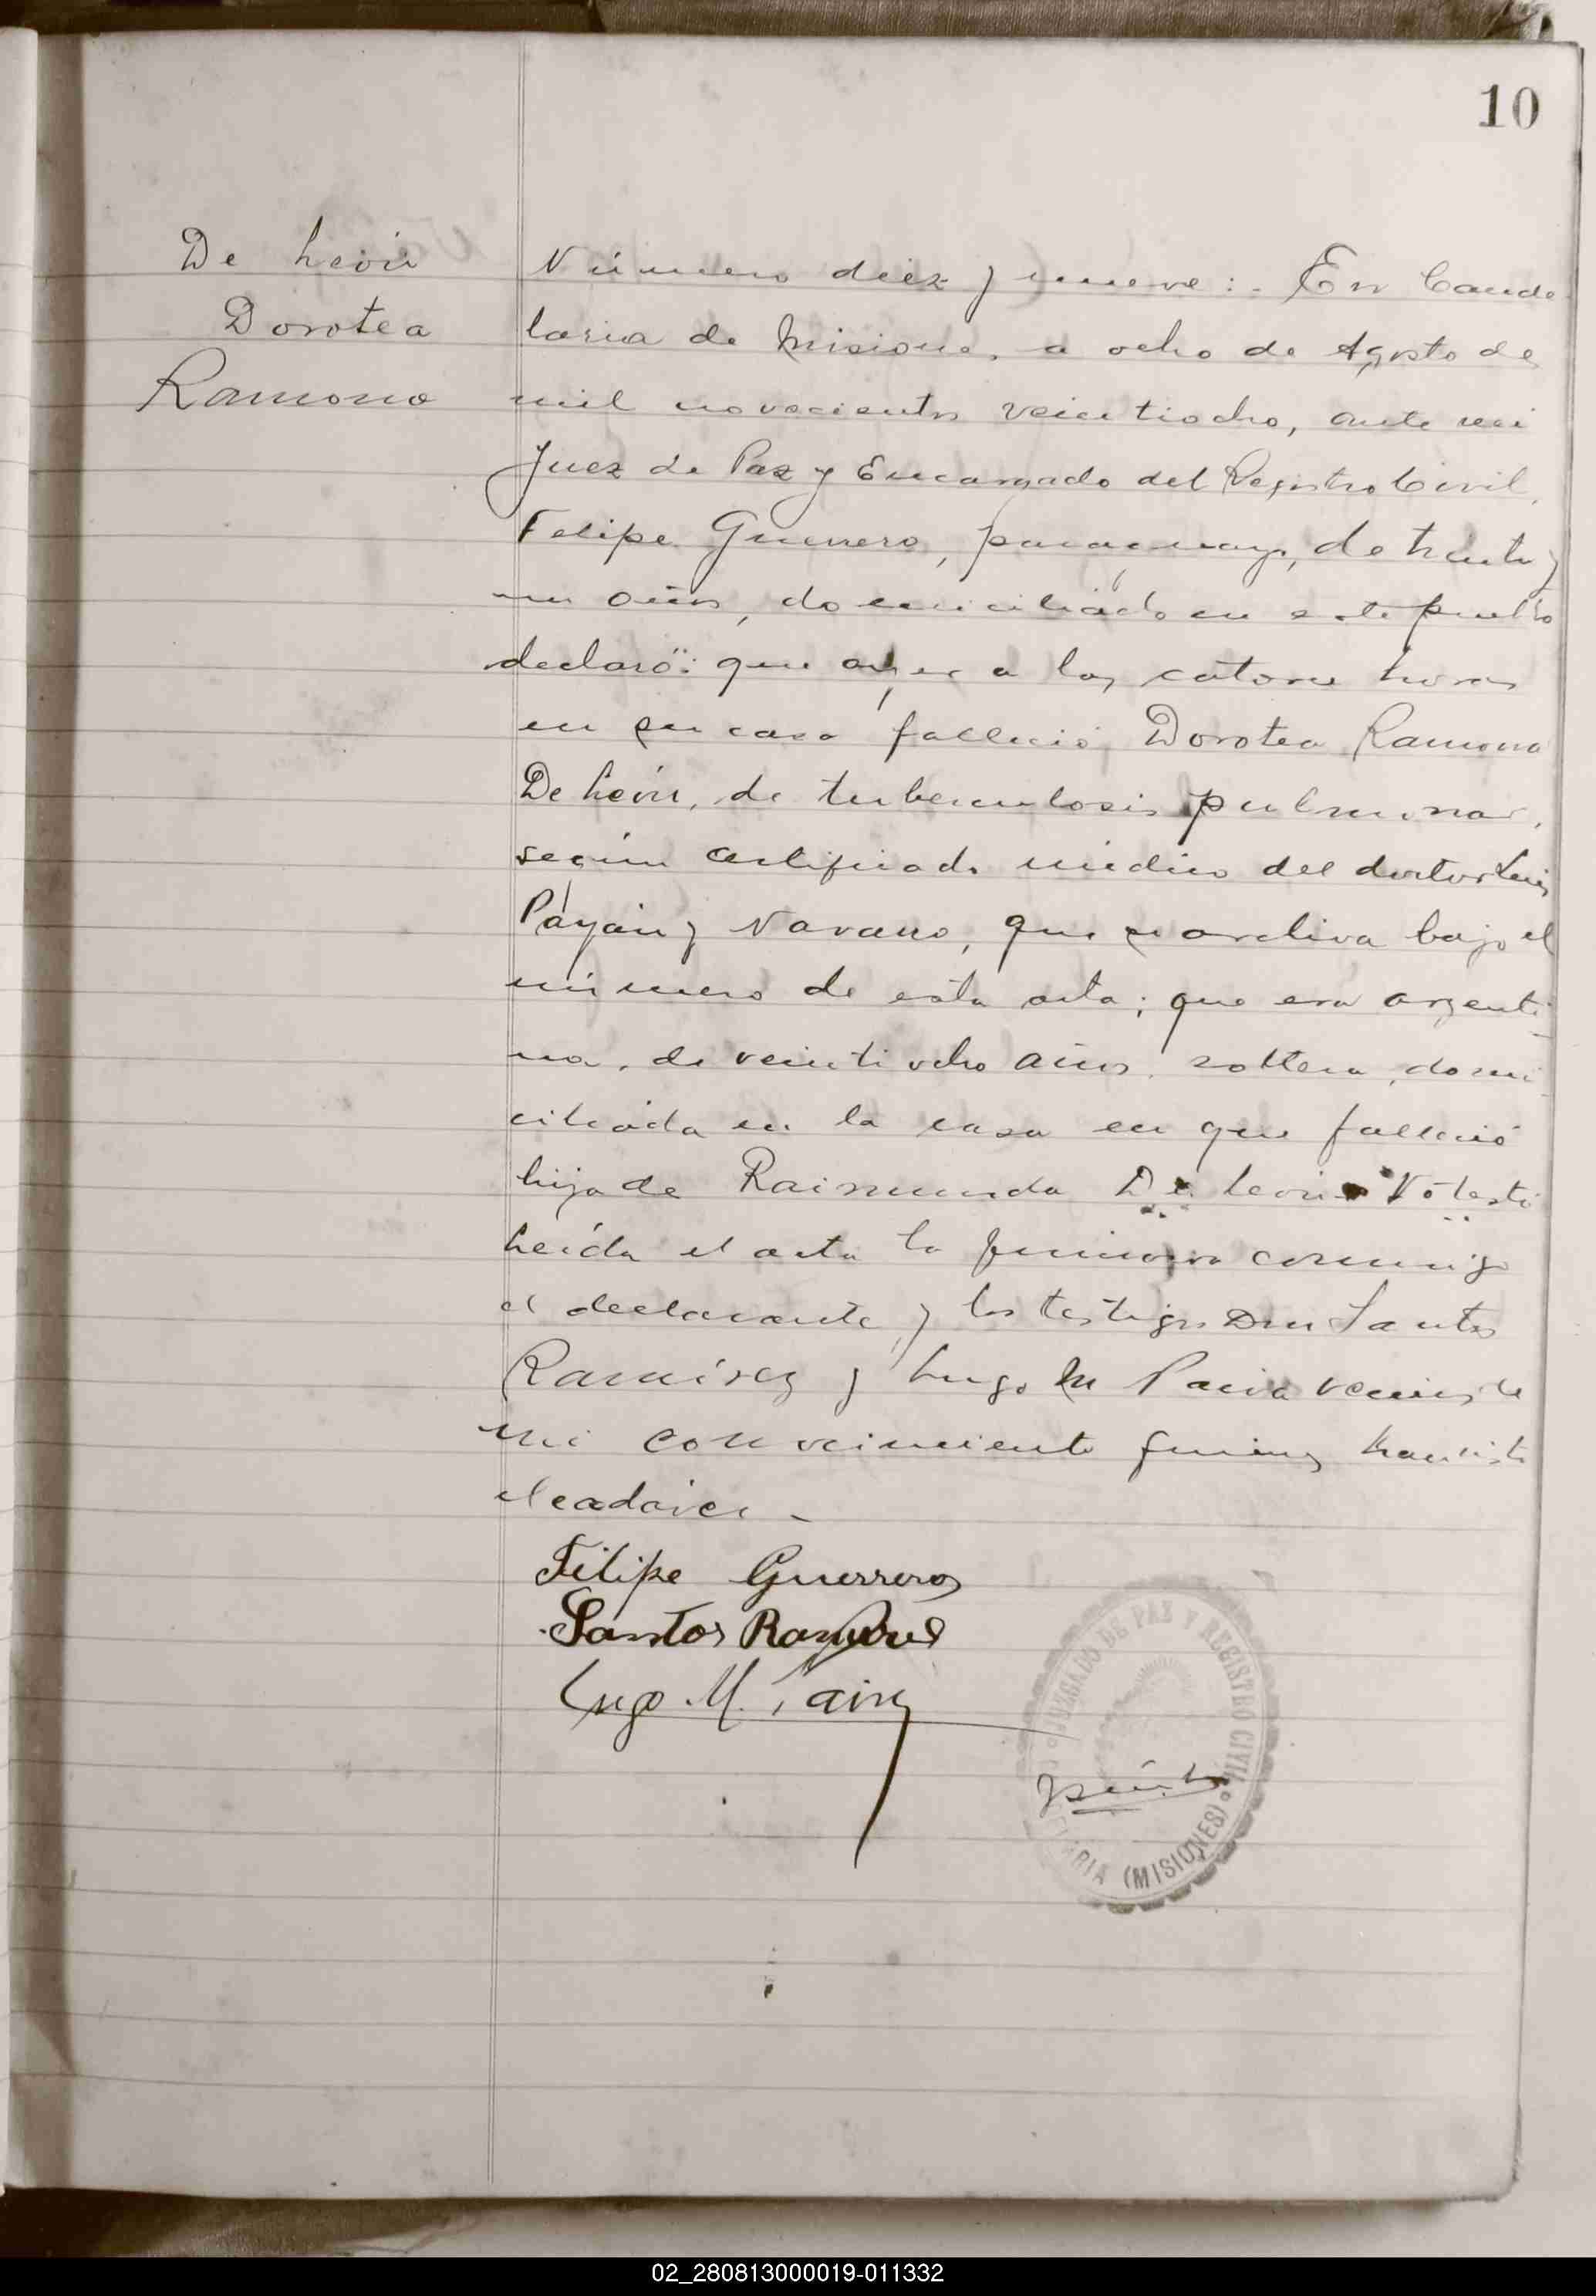 10
De León
Dorotea
Ramona
Número diez y nueve :- En Cande-
laria de Misiones, a ocho de Agosto de
mil novecientos veintiocho, ante mi
Juez de Paz y Encargado del Registro Civil,
Felipe Guerrero, paraguayo, de treinta y
un años, domiciliado en este pueblo
declaró: que ayer a las catorce horas
en su casa falleció Dorotea Ramona
De León, de tuberculosis pulmonar,
según certificado médico del doctor Luis
Payán y Navarro, que se archiva bajo el
número de esta acta; que era argenti-
na, de veintiocho años, soltera, domi-
ciliada en la casa en que falleció
hija de Raimunda De León
Leída el acta la firmaron conmigo
el declarante y los testigos Don Santos
Ramírez y Lugo M Paiva vecinos de
mi conocimiento quienes han visto
el cadáver -
Felipe Guerrero
Santos Ramirez
Lugo M.
JUZGADO DE PAZ Y REGISTRO CIVIL
(MISIONES)
02_280813000019-011332